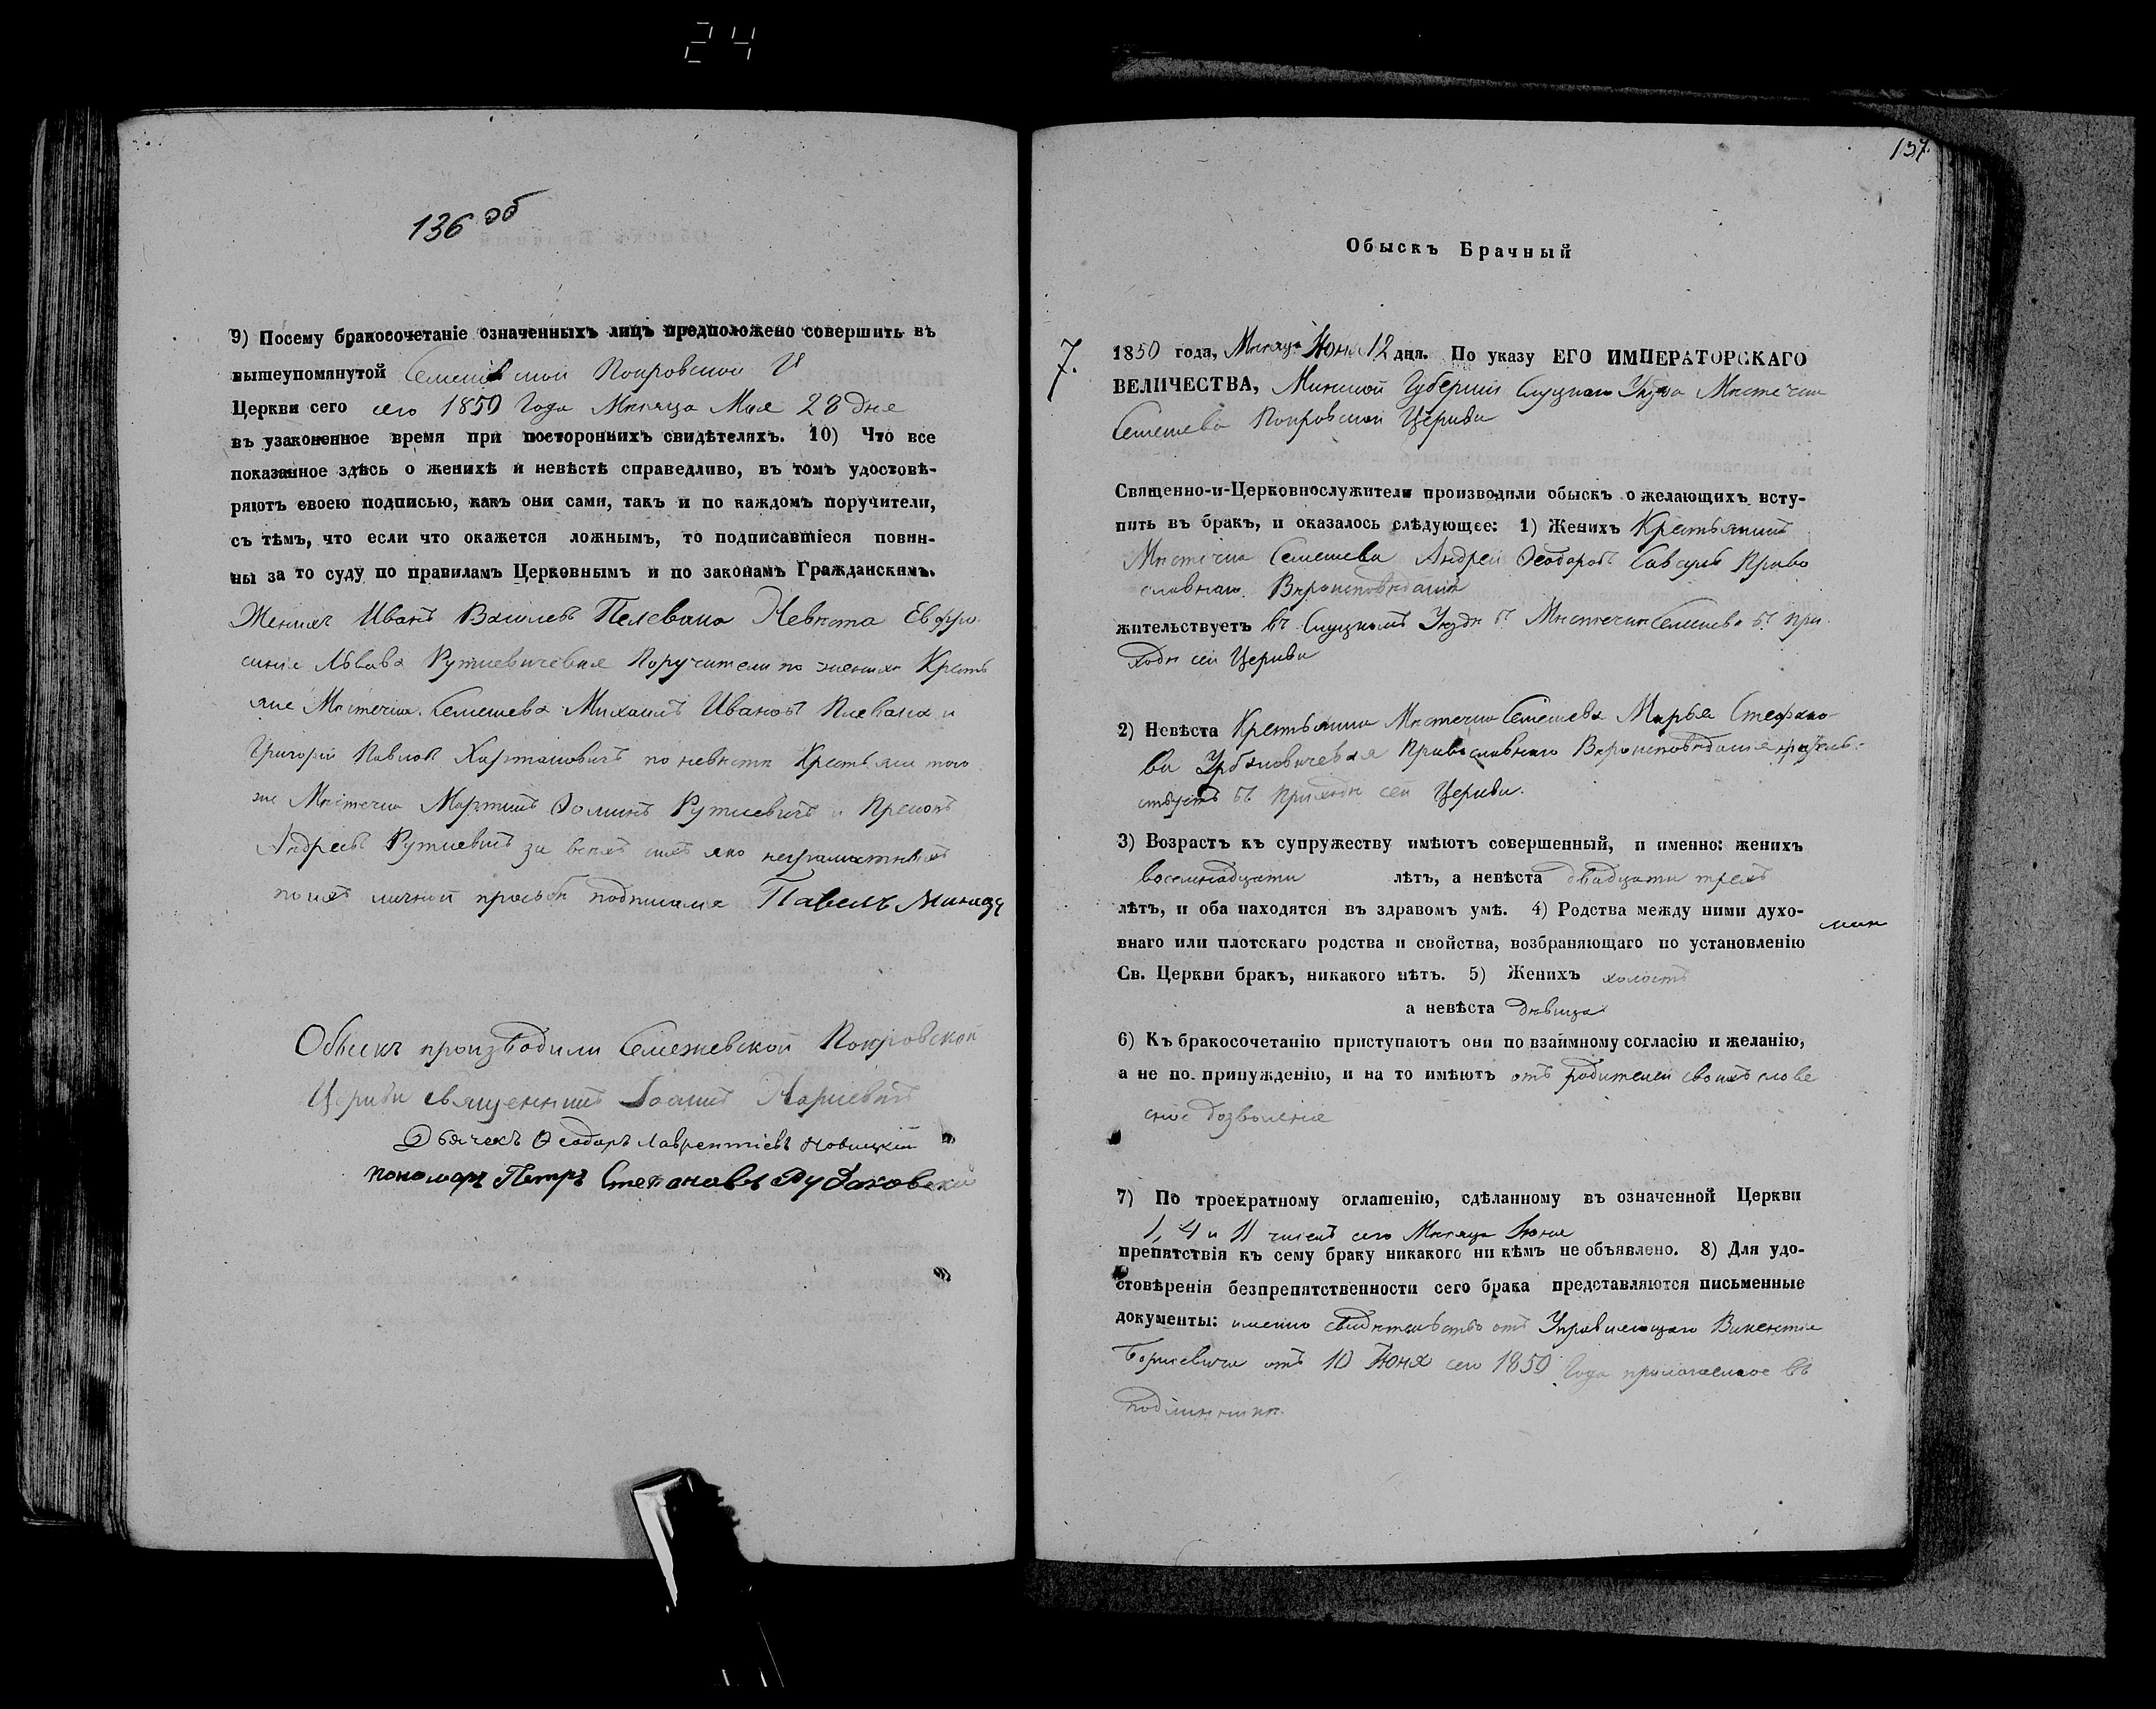 24
136 об
9) Посему бракосочетаніе означенныхъ лицъ предположено совершить въ
вышеупомянутой Семежевской Покровской
Церкви сего сего 1850 Года Мѣсяца Мая 28 дня
въ узаконенное время при постороннихъ свидѣтеляхъ. 10) Что все
показанное здѣсь о женихѣ и невѣстѣ справедливо, въ томъ удостовѣ-
ряютъ своею подписью, какъ они сами, такъ и по каждомъ поручители,
съ тѣмъ, что если что окажется ложнымъ, то подписавшіеся повин-
ны за то суду по правиламъ Церковнымъ и по законамъ Гражданскимъ.
Женихъ Иванъ Василевъ Пелевана Невѣста Евфро
синіе Львова Руткевичевна Поручители по женихѣ Кресть
яне Мѣстечка Семежева Михаилъ Ивановъ Плевана и
Григорій Павловъ по невѣстѣ Крестьяни того
же Мѣстечка Мартинъ Ѳоминъ Руткевичъ и
Андреевъ Руткевичъ за всѣхъ ихъ яко неграматныхъ
по ихъ личной просьбѣ подписался Павелъ
Обыскъ производили Семежевской Покровской
Церкви священникъ Іоаннъ
Дьячекъ Ѳеодоръ Лаврентіевъ Новицкій
пономарь Петръ Степановъ
137.
Обыскъ Брачный
7.
1850 года, Мѣсяца Юня 12 дня. По указу ЕГО ИМПЕРАТОРСКАГО
ВЕЛИЧЕСТВА, Минской Губерніи Слуцкаго Уѣзда Мѣстечка
Семежева Покровской Церкви
Священно-и-Церковнослужители производили обыскъ о желающихъ всту-
пить въ бракъ, и оказалось слѣдующее: 1) Женихъ Крестьянинъ
Мѣстечка Семежева Андрей Ѳеодоровъ Право
славнаго Вѣроисповѣданія
жительствуетъ въ Слуцкомъ Уездѣ въ Мѣстечкѣ Семежевѣ въ при
ходѣ сей Церкви
2) Невѣста Крестьянка Мѣстечка Семежева Марья Стефано-
ва Урбановичевна Православнаго Вѣроисповѣданія жутель-
ствуетъ въ приходѣ сей Церкви.
3) Возрастъ къ супружеству имѣютъ совершенный, и именно: женихъ
восемнадцати лѣтъ, а невѣста двадцати трехъ
лѣтъ, и оба находятся въ здравомъ умѣ. 4) Родства между ними духо-
внаго или плотскаго родства и свойства, возбраняющаго по установленію
Св. Церкви бракъ, никакого нѣтъ. 5) Женихъ холостъ
а невѣста дѣвица
6) Къ бракосочетанію приступаютъ они по взаимному согласію и желанію,
а не по принужденію, и на то имѣютъ отъ родителей своихъ слове
сное дозволеніе
7) По троекратному оглашенію, сдѣланному въ означенной Церкви
1, 4 и 11 чиселъ сего Мѣсяца Іюня
препятствія къ сему браку никакого ни кѣмъ не объявлено. 8) Для удо-
стовѣренія безпрепятственности сего брака представляются письменные
документы: именно свидѣтельство отъ Управляющаго Викентія
Боркевича отъ 10 Юня сего 1850 Года приложенное въ
подлинникѣ.